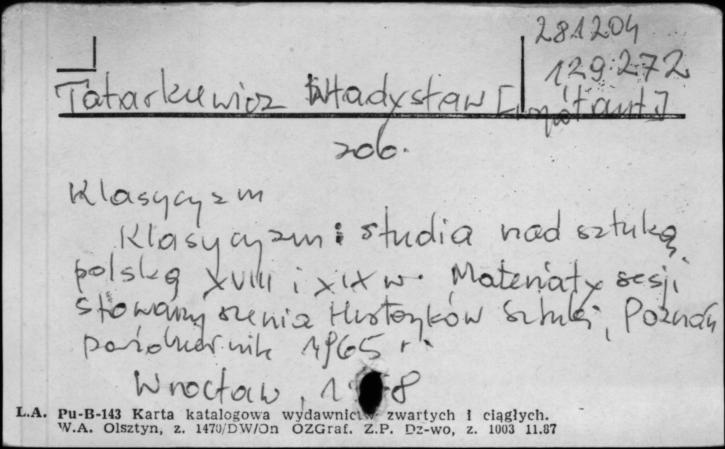 281204
129.272
Tatarkiewicz Władysław [współaut.]
zob.
Klasycyzm
Klasycyzm: studia nad sztuką
polską XVIII i XIX w. Materiały sesji
Stowarzyszenia Historyków Sztuki, Poznań
październik 1965 r.
Wrocław,
L.A. Pu-B-143 Karta katalogowa wydawnictw zwartych i ciągłych.
W.A. Olsztyn, z. 1470/DW/On OZGraf. Z.P. Dz-wo, z. 1003 11.87